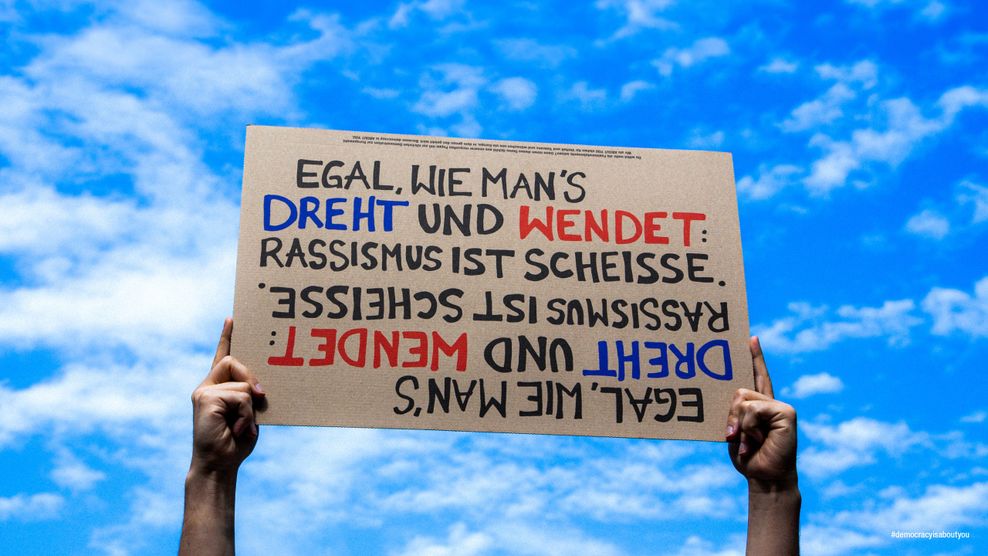 EGAL, WIE MAN'S
DREHT UND WENDET:
RASSISMUS IST SCHEISSE.
RASSISMUS IST SCHEISSE.
DREHT UND WENDET:
EGAL, WIE MAN'S
#democracyisaboutyou